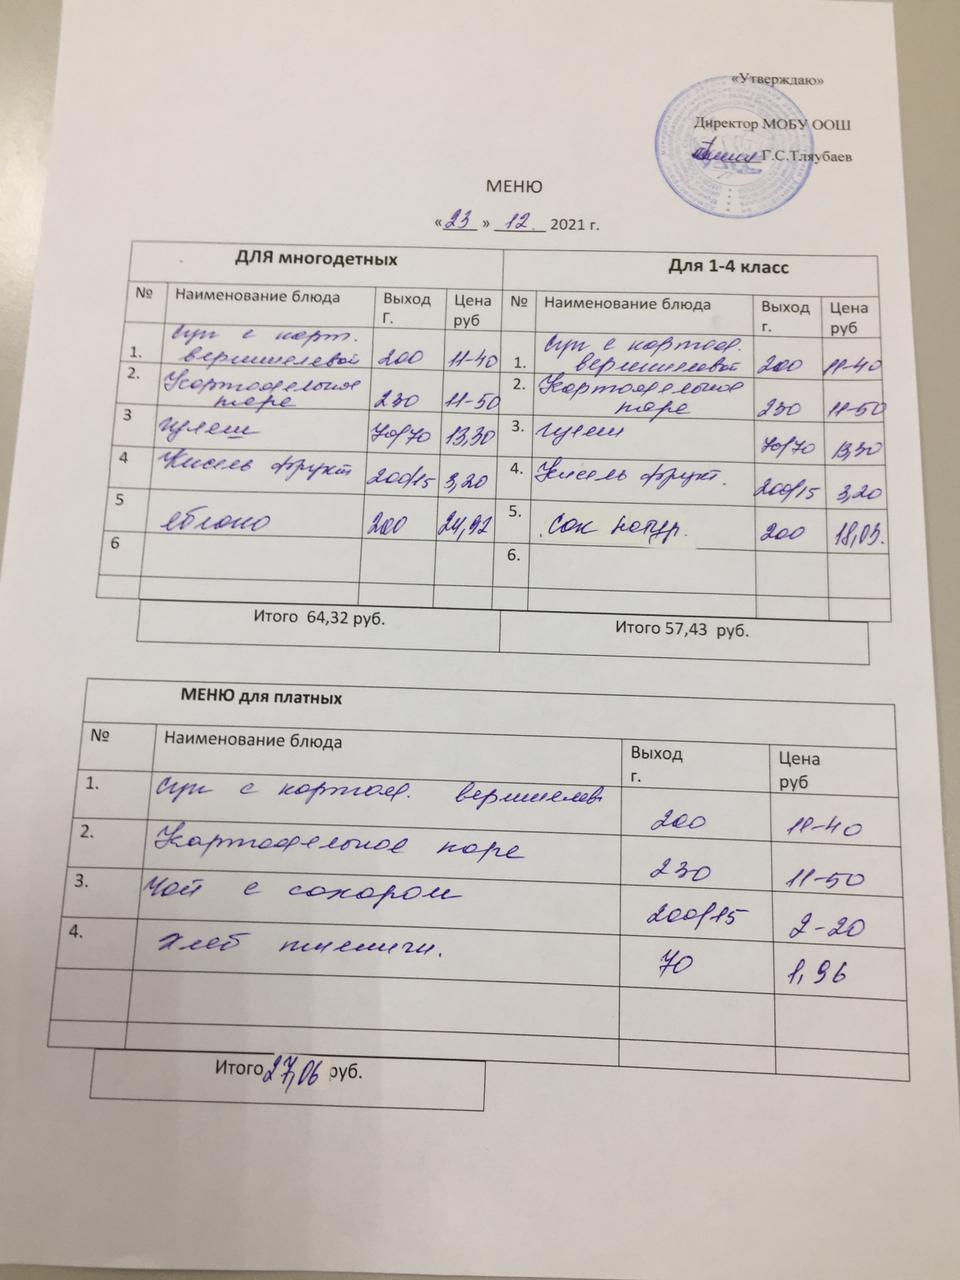 «Утверждаю»
Директор МОБУ ООШ
Г.С.Тляубаев
МЕНЮ
«23» 12. 2021 г.
ДЛЯ многодетных Для 1-4 класс
№ Наименование блюда Выход Г. Цена руб № Наименование блюда Выход г. Цена руб
1. Суп с карт. вермишелевой 200 11-40 1. Суп с картоф. вермишелевой 200 11-40
2. Картофельное пюре 230 11-50 2. Картофельное пюре 230 11-50
3 гуляш 70/70 13,30 3. гуляш 70/70 13,30
4 Кисель фрукт 200/15 3,20 4. Кисель фрукт. 200/15 3,20
5 яблоко 200 24,92 5. Сок натур. 200 18,03.
6 6.
Итого 64,32 руб. Итого 57,43 руб.
МЕНЮ для платных
№ Наименование блюда Выход г. Цена руб
1. Суп с картоф. вермишелев 200 11-40
2. Картофельное пюре 230 11-50
3. Чай с сахаром 200/15 2-20
4. Хлеб пшеничн. 70 1,96
Итого 27,06 руб.